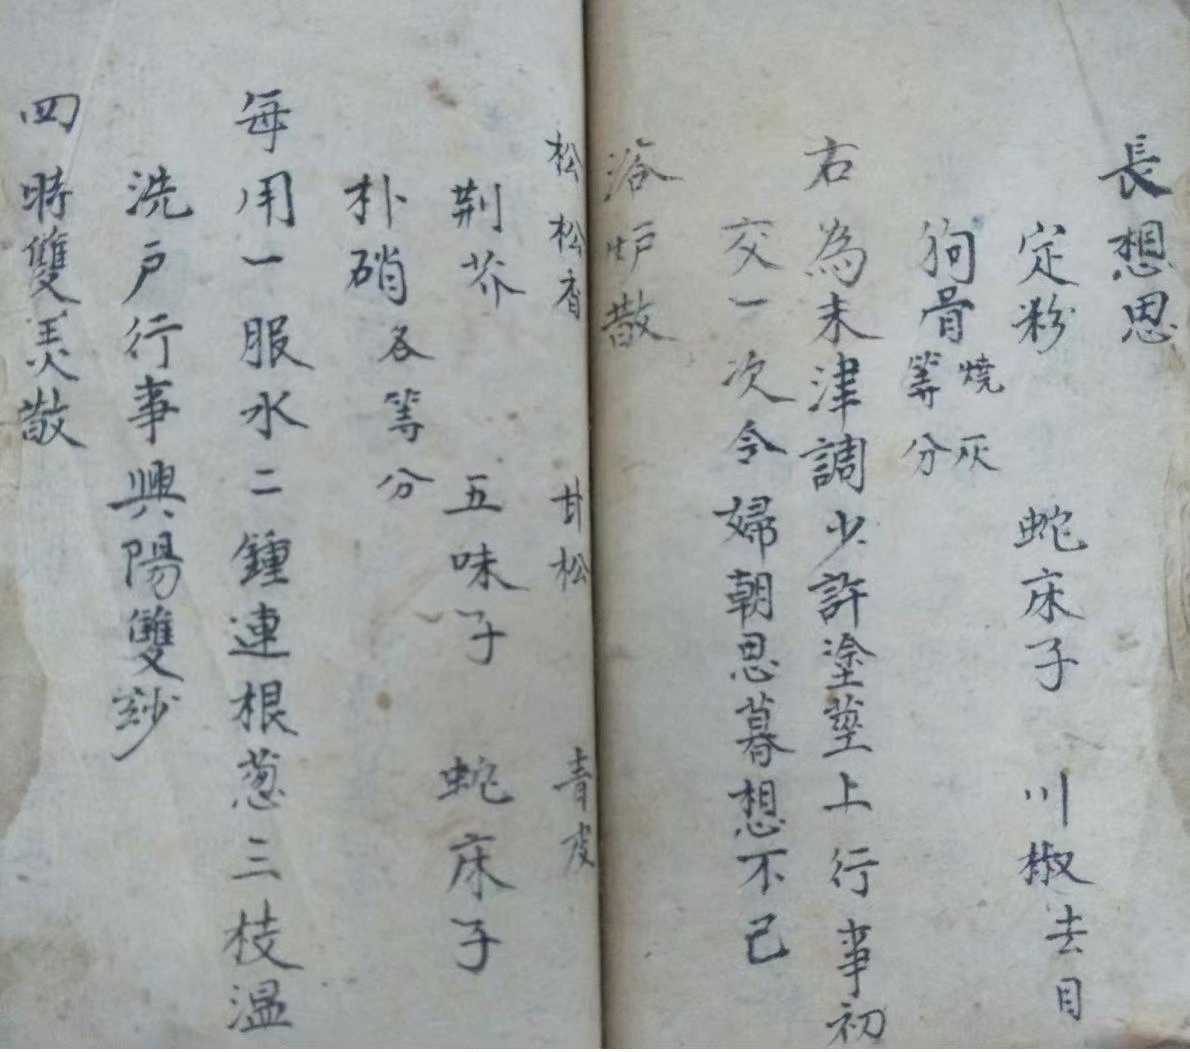 長想思
定粉 蛇床子 川椒去目
狗骨燒灰等分
右為末津調少許塗莖上行事初
交一次令婦朝思暮想不己
浴炉散
松松香 甘松 青皮
荆芥 五味子 蛇床子
朴硝各等分
每用一服水二鍾連根葱三枝温
洗户行事興陽雙紗
四時雙美散